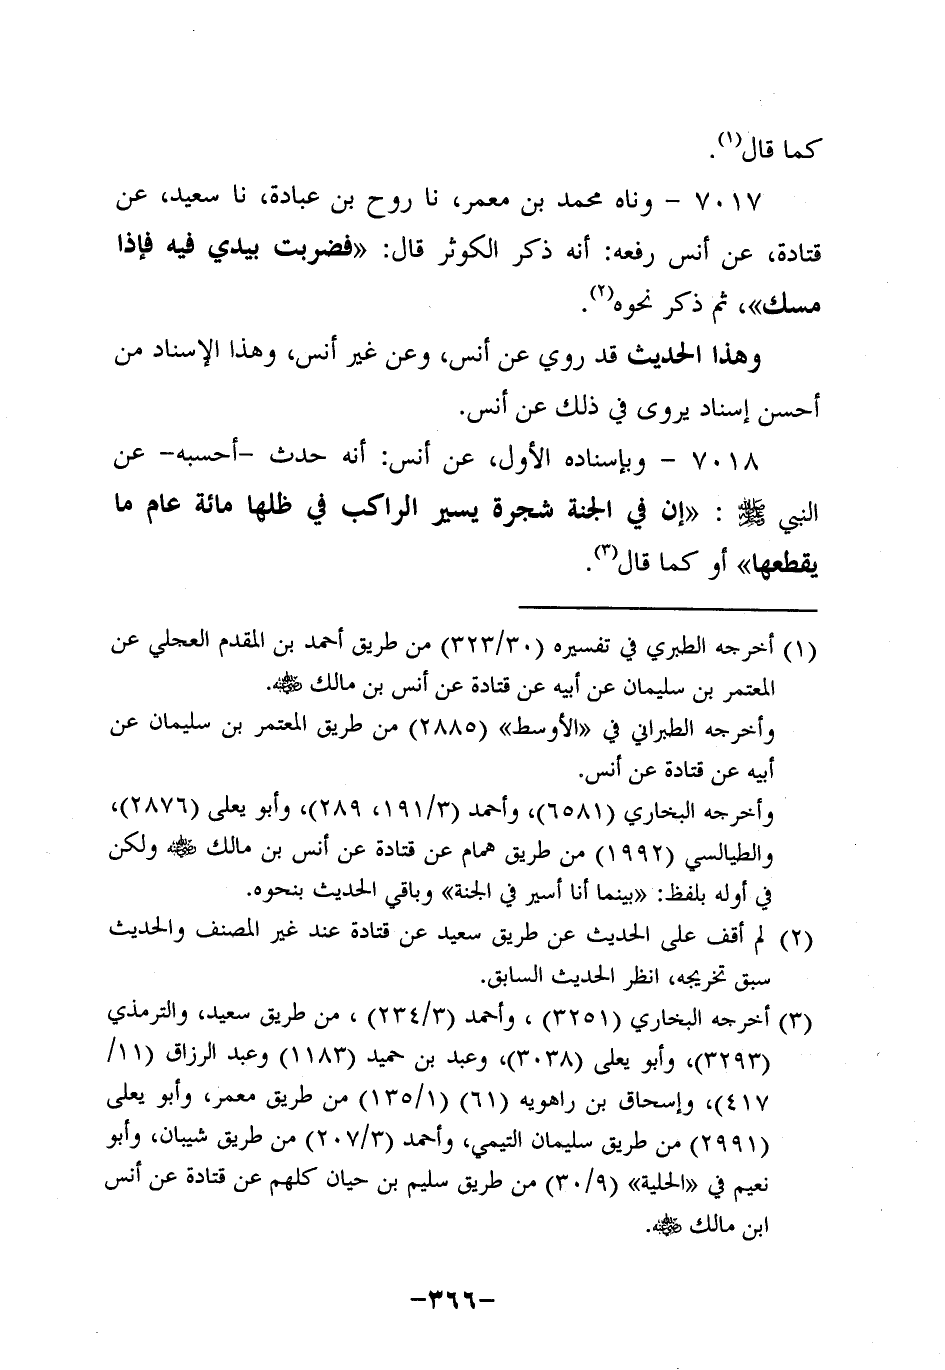 كما قال(١).
٧٠١٧ - وناه محمد بن معمر، نا روح بن عبادة، نا سعيد، عن
قتادة، عن أنس رفعه: أنه ذكر الكوثر قال: «فضربت بيدي فيه فإذا
مسك»، ثم ذكر نحوه(٢).
وهذا الحديث قد روي عن أنس، وعن غير أنس، وهذا الإسناد من
أحسن إسناد يروى في ذلك عن أنس.
٧٠١٨ - وبإسناده الأول، عن أنس: أنه حدث -أحسبه- عن
النبي ﷺ : «إن في الجنة شجرة يسير الراكب في ظلها مائة عام ما
يقطعها» أو كما قال(٣).
(١) أخرجه الطبري في تفسيره (٣٢٣/٣٠) من طريق أحمد بن المقدم العجلي عن
المعتمر بن سليمان عن أبيه عن قتادة عن أنس بن مالك رضي الله عنه.
وأخرجه الطبراني في «الأوسط» (٢٨٨٥) من طريق المعتمر بن سليمان عن
أبيه عن قتادة عن أنس.
وأخرجه البخاري (٦٥٨١)، وأحمد (١٩١/٣، ٢٨٩)، وأبو يعلى (٢٨٧٦)،
والطيالسي (١٩٩٢) من طريق همام عن قتادة عن أنس بن مالك رضي الله عنه ولكن
في أوله بلفظ: «بينما أنا أسير في الجنة» وباقي الحديث بنحوه.
(٢) لم أقف على الحديث عن طريق سعيد عن قتادة عند غير المصنف والحديث
سبق تخريجه، انظر الحديث السابق.
(٣) أخرجه البخاري (٣٢٥١) ، وأحمد (٢٣٤/٣) ، من طريق سعيد، والترمذي
(٣٢٩٣)، وأبو يعلى (٣٠٣٨)، وعبد بن حميد (١١٨٣) وعبد الرزاق (١١/
٤١٧)، وإسحاق بن راهويه (٦١) (١٣٥/١) من طريق معمر، وأبو يعلى
(٢٩٩١) من طريق سليمان التيمي، وأحمد (٢٠٧/٣) من طريق شيبان، وأبو
نعيم في «الحلية» (٣٠/٩) من طريق سليم بن حيان كلهم عن قتادة عن أنس
ابن مالك رضي الله عنه.
-٣٦٦-